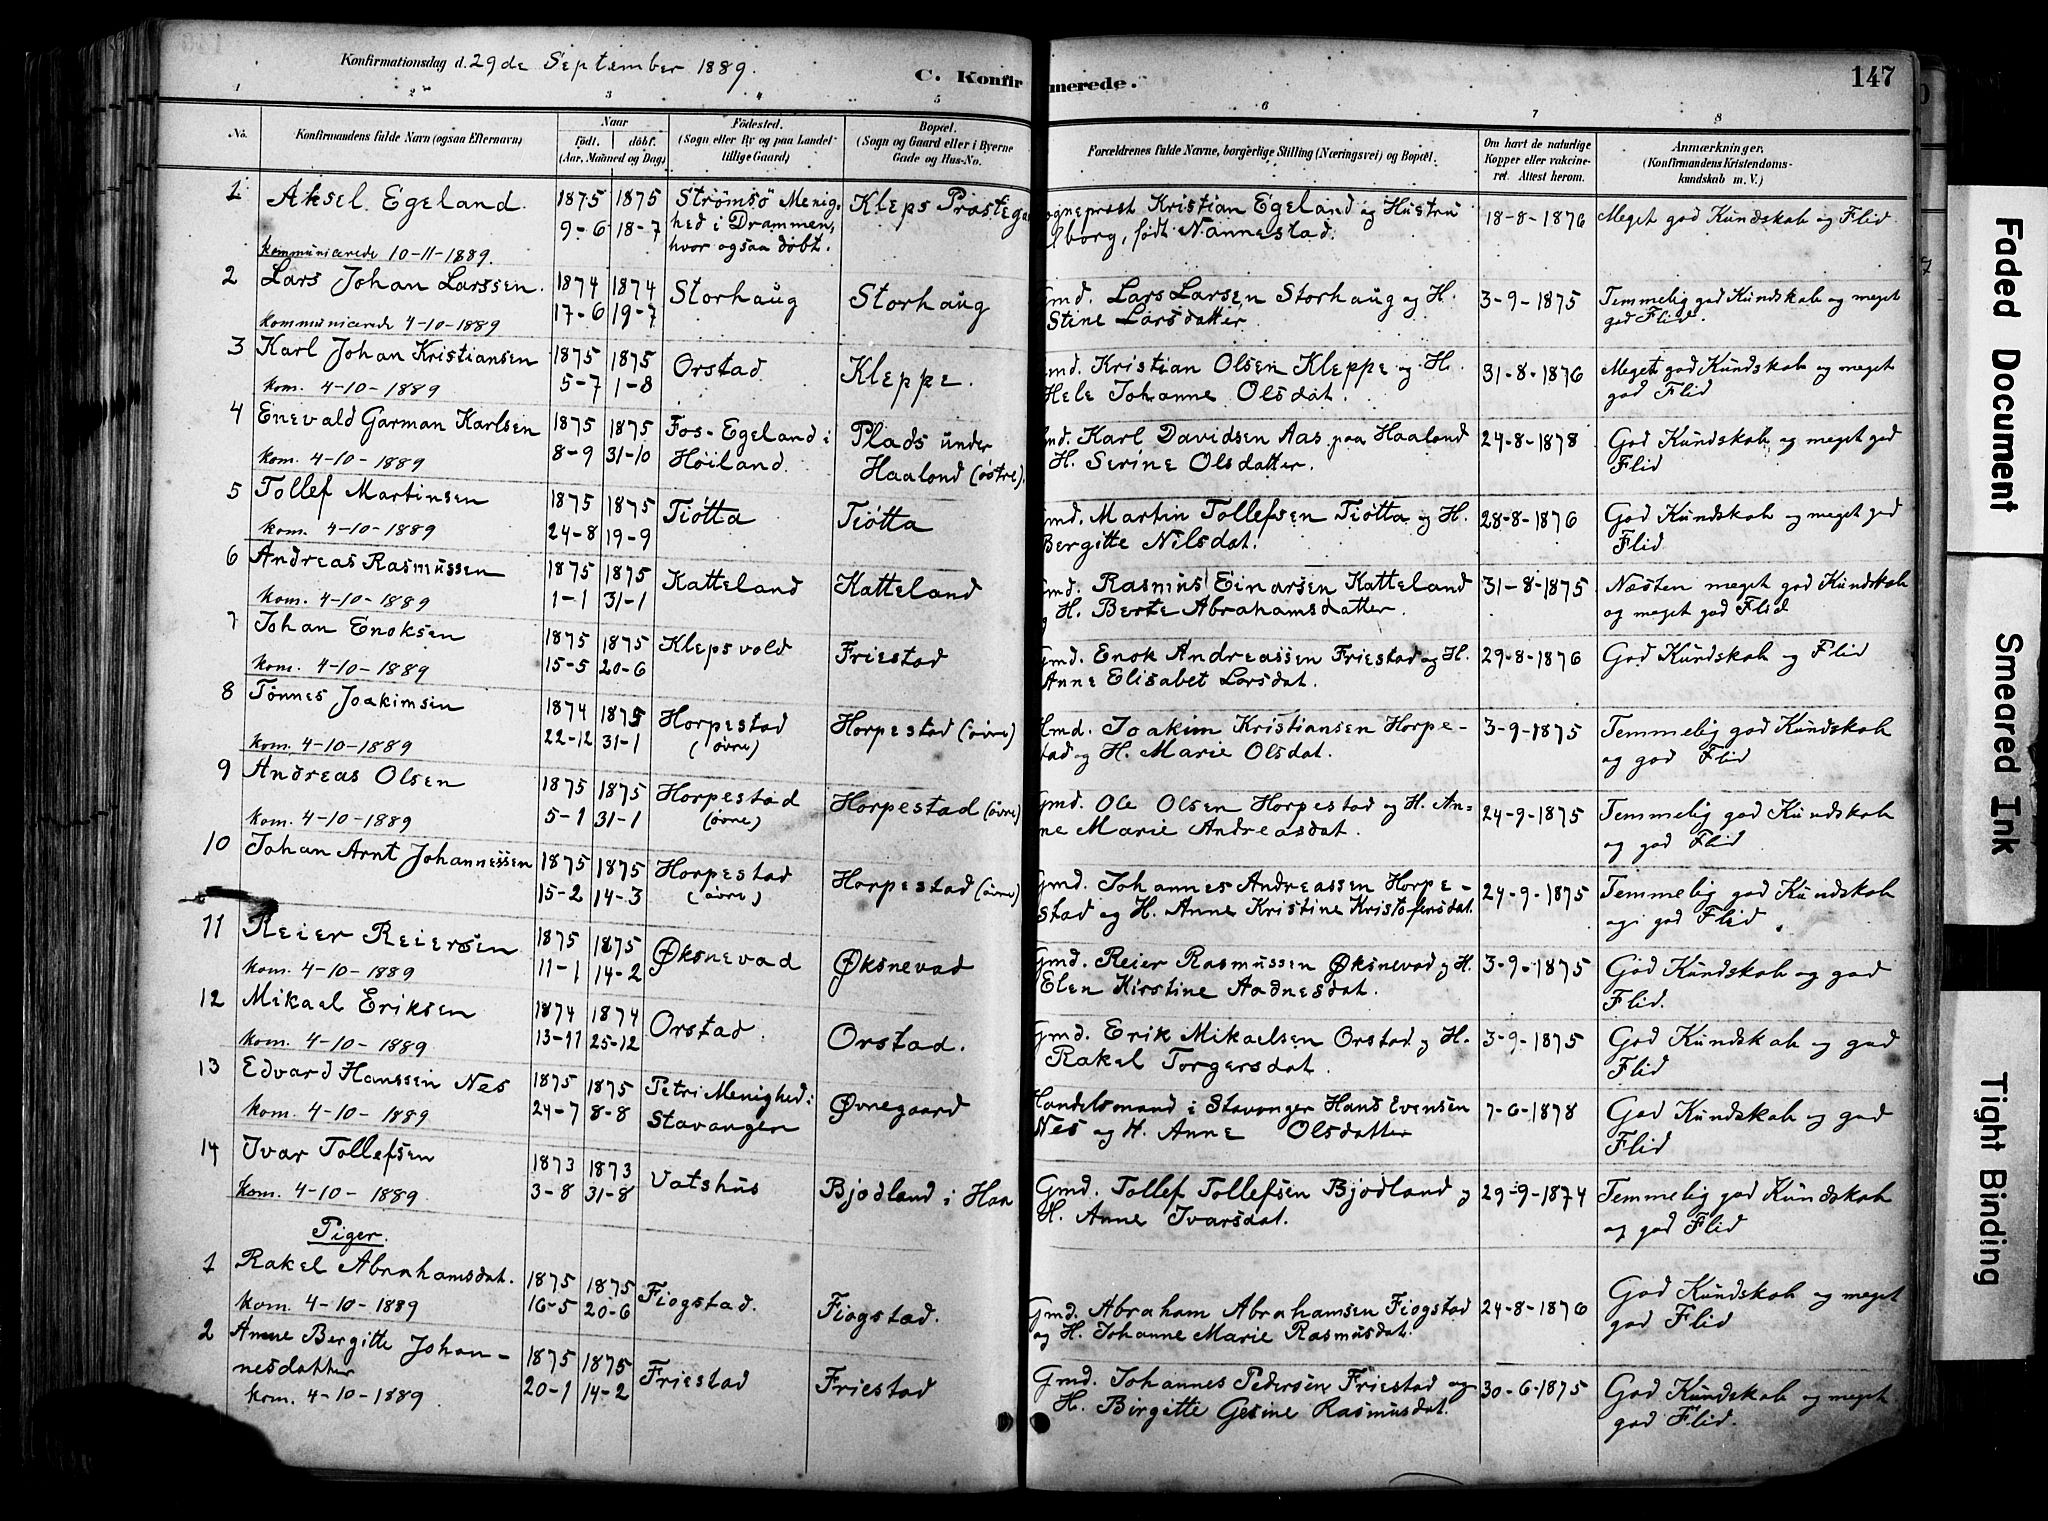 Konfirmationsdag d. 29de September 1889.
C. Konfirmerede.
147
1 2 3 4 5 6 7 8
No. Konfirmandens fulde Navn (ogsaa Efternavn) Naar født. døbt. (Aar, Maaned og Dag) Fødested. (Sogn eller By og paa Landet tillige Gaard) Bopæl. (Sogn og Gaard eller i Byerne Gade og Hus-No. Forældrenes fulde Navne, borgerlige Stilling (Næringsvei) og Bopæl. Om havt de naturlige Kopper eller vakcineret. Attest herom. Anmærkninger. (Konfirmandens Kristendomskundskab m. V.)
1 Aksel Egeland. 1875 1875 Strömsö Menig- Kleps Præstega ogneprest Kristian Egeland og Hustru 18-8-1876 Meget god Kundskab og Flid
9-6 18-7 hed i Drammen, lborg, født Nannestad.
kommunicerede 10-11-1889. hvor ogsaa døbt.
2 Lars Johan Larssen. 1874 1874 Storhaug Storhaug Gmd. Lars Larsen Storhaug og H. 3-9-1875 Temmelig god Kundskab og meget
kommunicerede 4-10-1889 17-6 19-7 Stine Larsdatter god Flid.
3 Karl Johan Kristiansen 1875 1875 Orstad Kleppe. Gmd. Kristian Olsen Kleppe og H. 31-8-1876 Meget god Kundskab og meget
kom. 4-10-1889 5-7 1-8 Hele Johanne Olsdat. god Flid
4 Enevald Garman Karlsen 1875 1875 Fos-Egeland i Plads under md. Karl Davidsen Aas paa Haaland 24-8-1878 God Kundskab og meget god
kom. 4-10-1889 8-9 31-10 Høiland. Haaland (østre). H. Serine Olsdatter. Flid
5 Tollef Martinsen 1875 1875 Tiøtta Tiøtta Gmd. Martin Tollefsen Tiøtta og H. 28-8-1876 God Kundskab og meget god
kom. 4-10-1889 24-8 19-9 Bergitte Nilsdat. Flid
6 Andreas Rasmussen 1875 1875 Katteland Katteland Gmd. Rasmus Einarsen Katteland 31-8-1875 Næsten meget god Kundskab
kom. 4-10-1889 1-1 31-1 og H. Berte Abrahamsdatter. og meget god Flid
7 Johan Enoksen 1875 1875 Klepsvold Friestad Gmd. Enok Andreassen Friestad og H. 29-8-1876 God Kundskab og Flid
kom. 4-10-1889 15-5 20-6 Anne Elisabet Larsdat.
8 Tønnes Joakimsen 1874 1875 Horpestad Horpestad (øvre) Hmd. Joakim Kristiansen Horpe- 3-9-1875 Temmelig god Kundskab
kom. 4-10-1889 22-12 31-1 (øvre) tad og H. Marie Olsdat. og god Flid
9 Andreas Olsen 1875 1875 Horpestad Horpestad (øvre) Gmd. Ole Olsen Horpestad og H. An- 24-9-1875 Temmelig god Kundskab
kom. 4-10-1889 5-1 31-1 (øvre) ne Marie Andreasdat. og god Flid
10 Johan Arnt Johannessen 1875 1875 Horpestad Horpestad (øvre) Gmd. Johannes Andreassen Horpe- 24-9-1875 Temmelig god Kundskab
15-2 14-3 (øvre) stad og H. Anne Kristine Kristofersdat. og god Flid
11 Reier Reiersen 1875 1875 Øksnevad Øksnevad Gmd. Reier Rasmussen Øksnevad og H. 3-9-1875 God Kundskab og god
kom. 4-10-1889 11-1 14-2 Elen Kirstine Aadnesdat. Flid.
12 Mikael Eriksen 1874 1874 Orstad. Orstad. Gmd. Erik Mikaelsen Orstad og H. 3-9-1875 God Kundskab og god
kom. 4-10-1889 13-11 25-12 Rakel Torgersdat. Flid
13 Edvard Hanssen Nes 1875 1875 Petri Menighed i Øvregaard Handelsmand i Stavanger Hans Evensen 7-6-1878 God Kundskab og god
kom. 4-10-1889 24-7 8-8 Stavanger Nes og H. Anne Olsdatter Flid
14 Ivar Tollefsen 1873 1873 Vatshus Bjodland i Haa Gmd. Tollef Tollefsen Bjodland og 29-9-1874 Temmelig god Kundskab
kom. 4-10-1889. 3-8 31-8 H. Anne Ivarsdat. og god Flid
Piger.
1 Rakel Abrahamsdat. 1875 1875 Fiogstad. Fiogstad. Gmd. Abraham Abrahamsen Fiogstad 24-8-1876 God Kundskab og meget
kom. 4-10-1889 16-5 20-6 og H. Johanne Marie Rasmusdat. god Flid
2 Anne Bergitte Johan- 1875 1875 Friestad Friestad Gmd. Johannes Pedersen Friestad og 30-6-1875 God Kundskab og meget
nesdatter 20-1 14-2 H. Birgitte Gesine Rasmusdat. god Flid.
kom. 4-10-1889.
Faded Document
Smeared Ink
Tight Binding